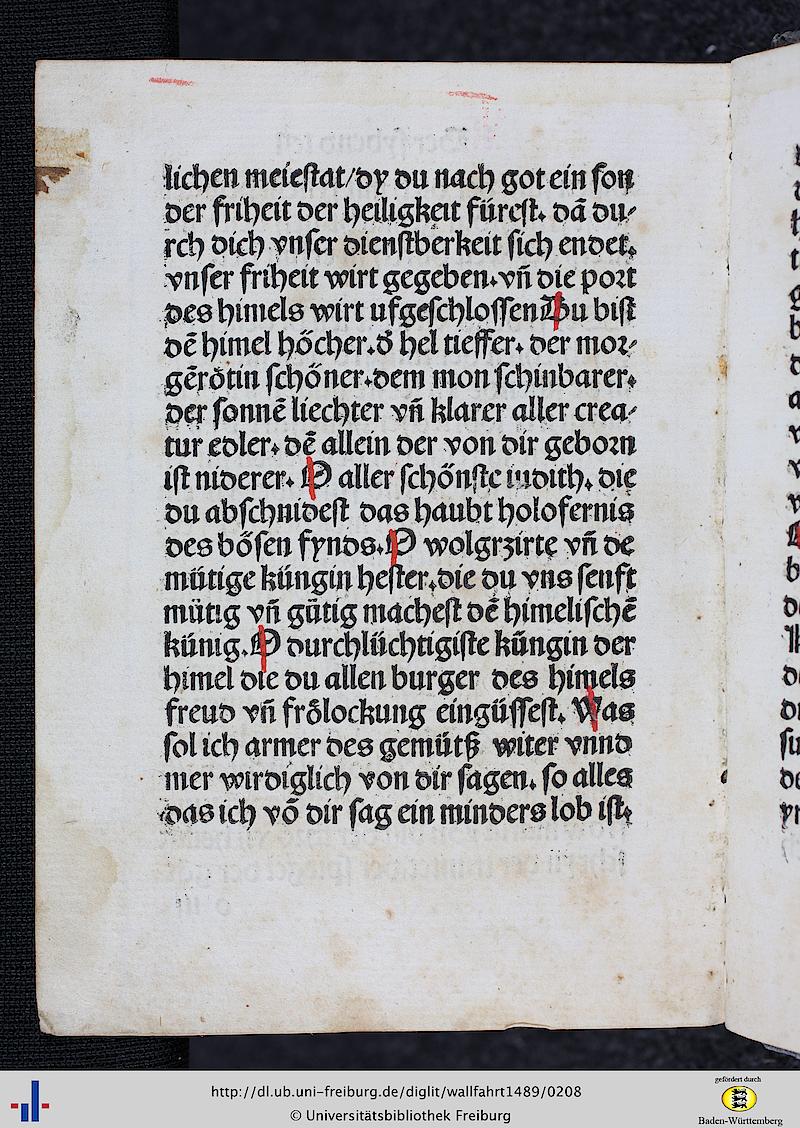 lichen meiestat/dy du nach got ein son
der friheit der heiligkeit fürest. dā du⸗
rch dich vnser dienstberkeit sich endet.
vnser friheit wirt gegeben. vn̄ die port
des himels wirt ufgeschlossen Du bist
dē himel höcher. d̄ hel tieffer. der mor⸗
gērötin schöner. dem mon schinbarer.
der sonnē liechter vn̄ klarer aller crea⸗
tur edler. dē allein der von dir geborn
ist niderer. O aller schönste iudith. die
du abschnidest das haubt holofernis
des bösen fynds. O wolgrzirte vn̄ de
mütige küngin hester. die du vns senft
mütig vn̄ gütig machest dē himelischē
künig. O durchlüchtigiste küngin der
himel die du allen burger des himels
freud vn̄ frölockung eingüssest. Was
sol ich armer des gemütß witer vnnd
mer wirdiglich von dir sagen. so alles
das ich vō dir sag ein minders lob ist.
http://dl.ub.uni-freiburg.de/diglit/wallfahrt1489/0208
© Universitätsbibliothek Freiburg
gefördert durch
Baden-Württemberg